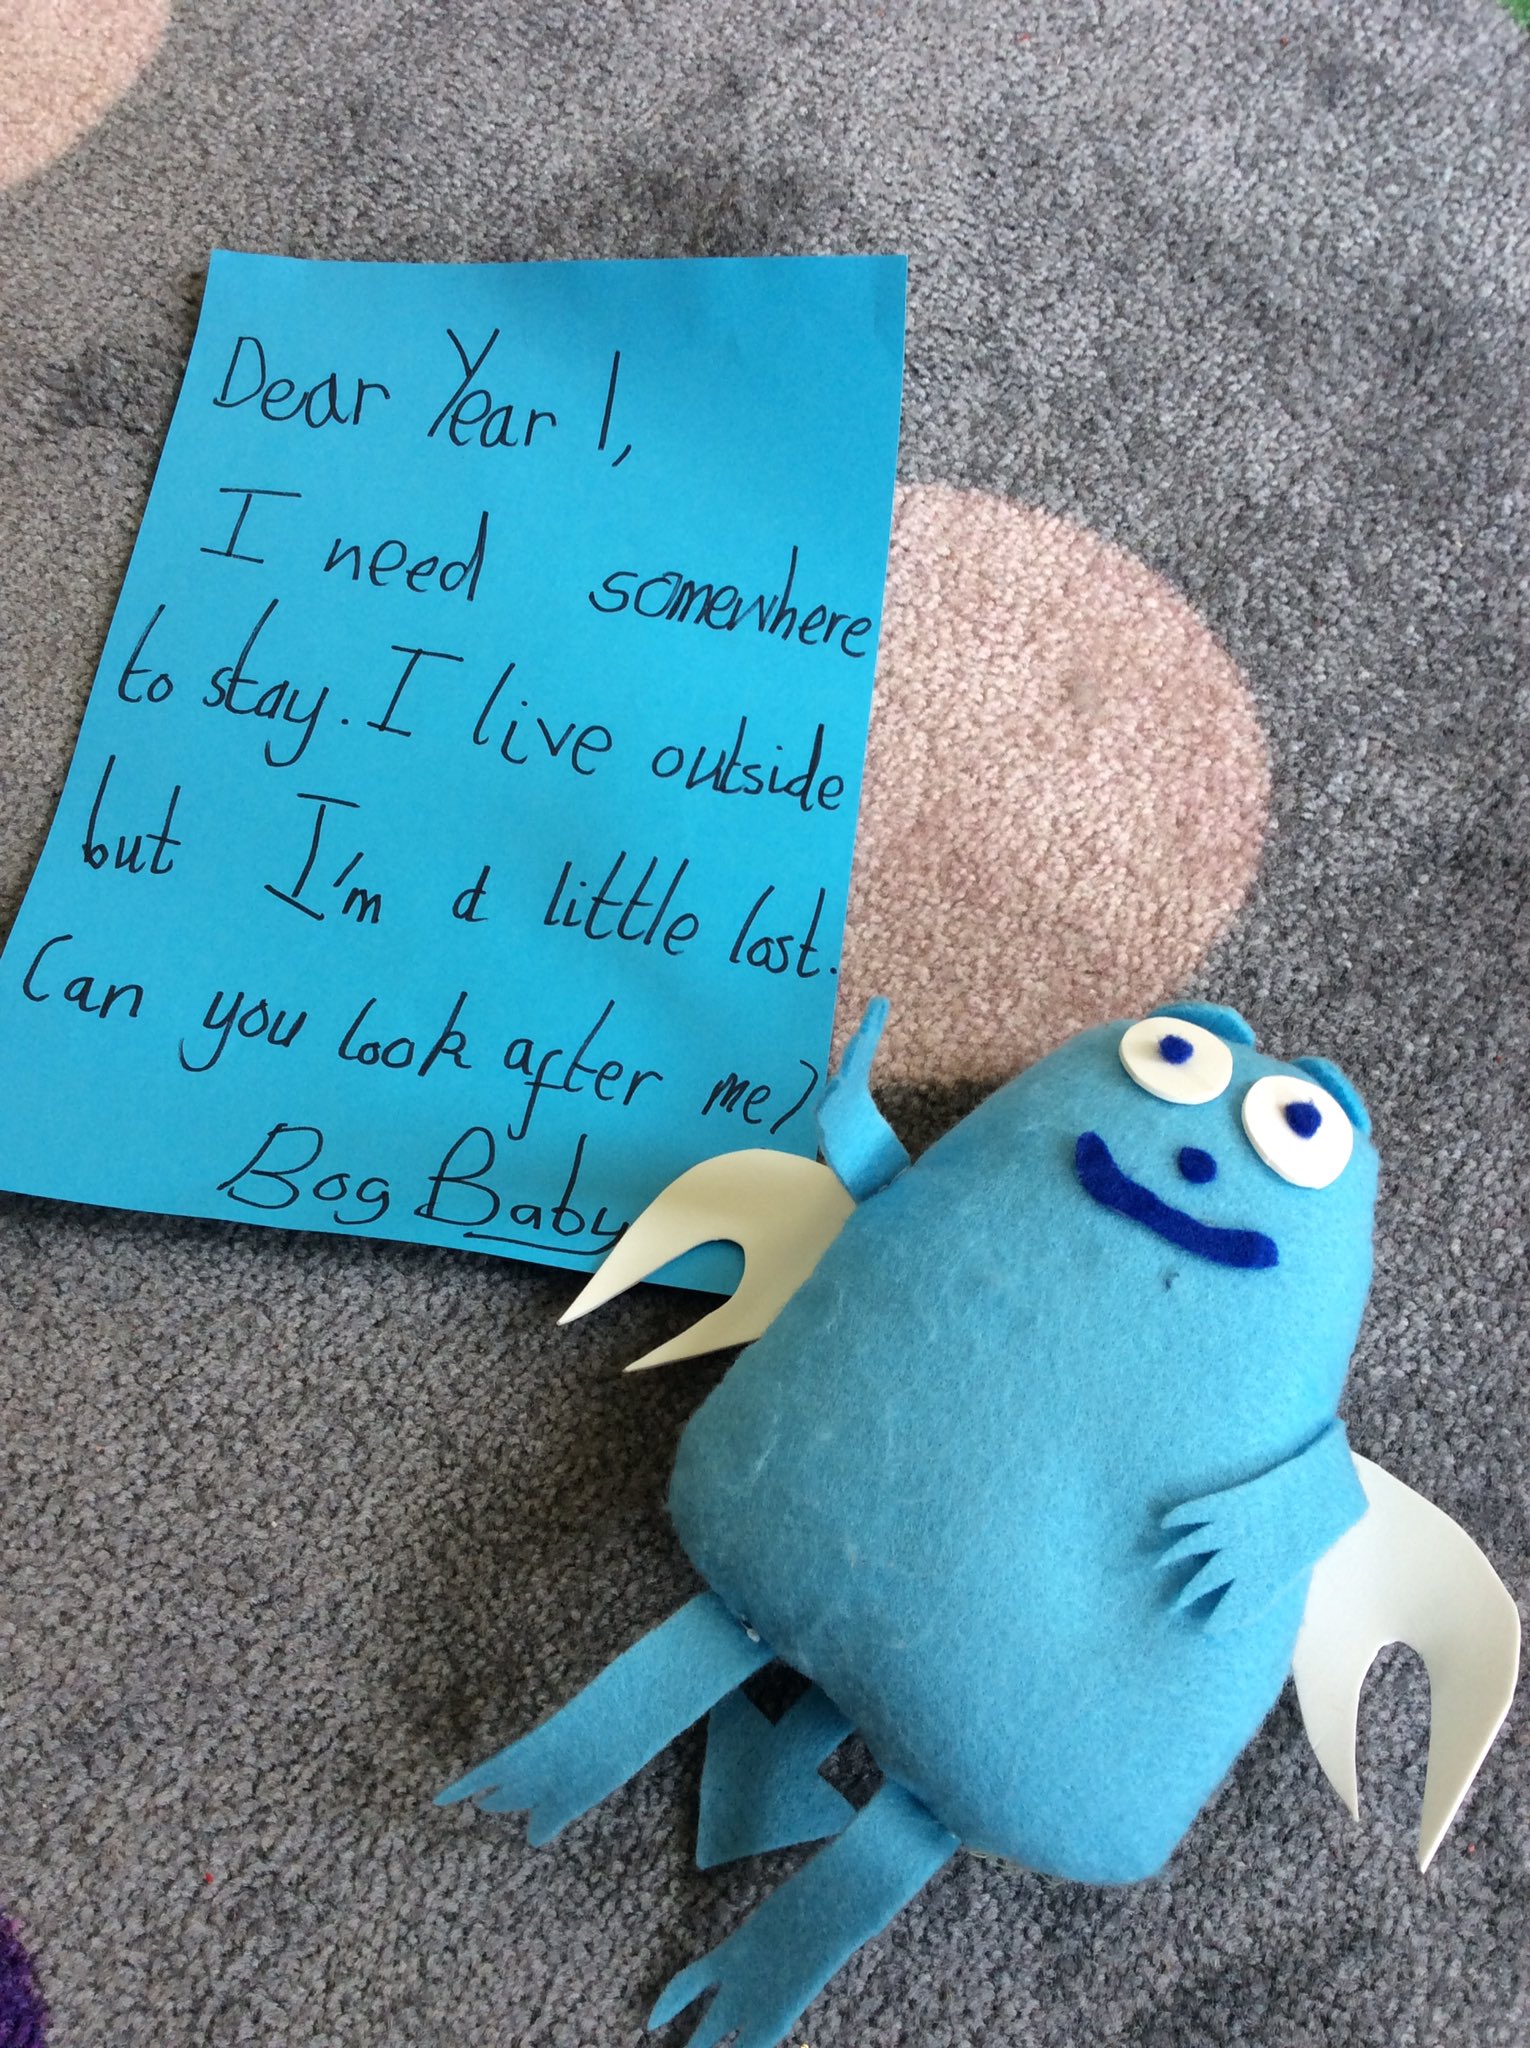 Dear Year 1,
I need somewhere
to stay. I live outside
but I'm a little lost.
Can you look after me?
Bog Baby